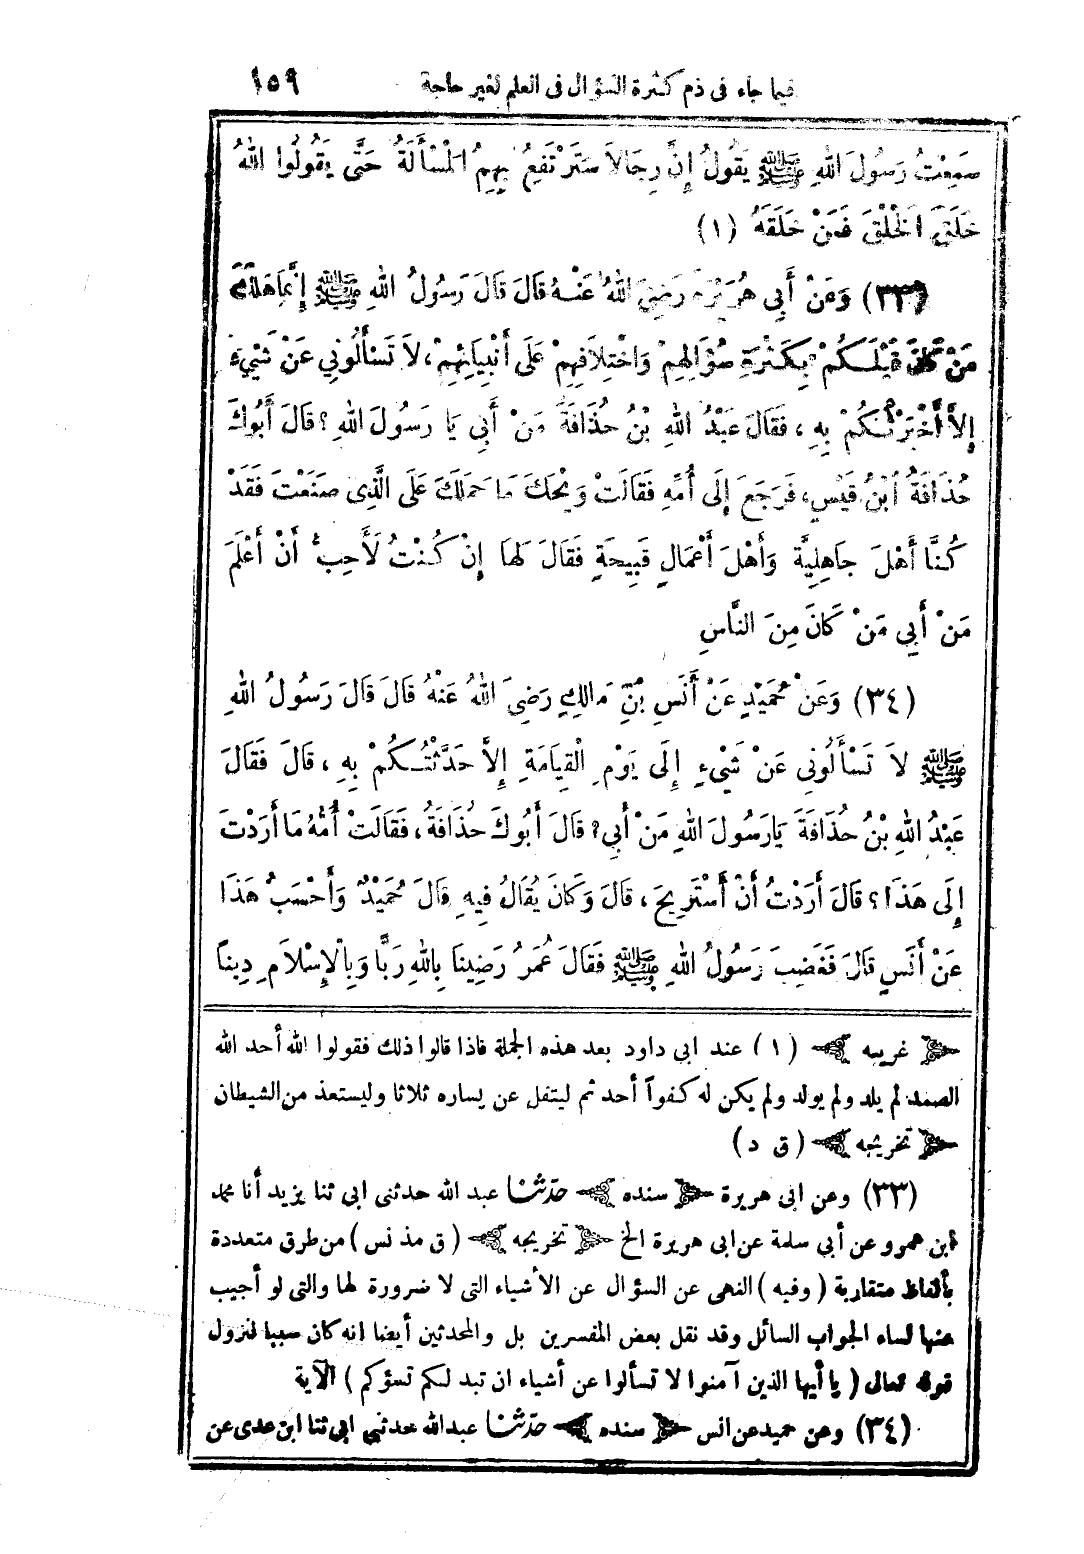 فيما جاء فى ذم كثرة السؤال فى العلم لغير حاجة ١٥٩
سَمِعْتُ رَسُولَ اللهِ ﷺ يَقُولُ إِنَّ رِجَالاً سَتَرْتَفِعُ بِهِمُ الْمَسْأَلَةُ حَتَّى يَقُولُوا اللهُ
خَلَقَ الْخَلْقَ فَمَنْ خَلَقَهُ (١)
(٣٣) وَعَنْ أَبِي هُرَيْرَةَ رَضِيَ اللهُ عَنْهُ قَالَ قَالَ رَسُولُ اللهِ ﷺ إِنَّمَا هَلَكَ
مَنْ كَانَ قَبْلَكُمْ بِكَثْرَةِ سُؤَالِهِمْ وَاخْتِلاَفِهِمْ عَلَى أَنْبِيَائِهِمْ، لاَ تَسْأَلُونِي عَنْ شَيْءٍ
إِلاَّ أَخْبَرْتُكُمْ بِهِ، فَقَالَ عَبْدُ اللهِ بْنُ حُذَافَةَ مَنْ أَبِي يَا رَسُولَ اللهِ؟ قَالَ أَبُوكَ
حُذَافَةُ ابْنُ قَيْسٍ، فَرَجَعَ إِلَى أُمِّهِ فَقَالَتْ وَيْحَكَ مَا حَمَلَكَ عَلَى الَّذِى صَنَعْتَ فَقَدْ
كُنَّا أَهْلَ جَاهِلِيَّةٍ وَأَهْلَ أَعْمَالٍ قَبِيحَةٍ فَقَالَ لَهَا إِنْ كُنْتُ لَأُحِبُّ أَنْ أَعْلَمَ
مَنْ أَبِي مَنْ كَانَ مِنَ النَّاسِ
(٣٤) وَعَنْ حُمَيْدٍ عَنْ أَنَسِ بْنِ مَالِكٍ رَضِيَ اللهُ عَنْهُ قَالَ قَالَ رَسُولُ اللهِ
ﷺ لاَ تَسْأَلُونِى عَنْ شَيْءٍ إِلَى يَوْمِ الْقِيَامَةِ إِلاَّ حَدَّثْتُكُمْ بِهِ، قَالَ فَقَالَ
عَبْدُ اللهِ بْنُ حُذَافَةَ يَارَسُولَ اللهِ مَنْ أَبِي؟ قَالَ أَبُوكَ حُذَافَةُ، فَقَالَتْ أُمُّهُ مَا أَرَدْتَ
إِلَى هَذَا؟ قَالَ أَرَدْتُ أَنْ أَسْتَرِيحَ، قَالَ وَكَانَ يُقَالُ فِيهِ قَالَ حُمَيْدٌ وَأَحْسَبُ هَذَا
عَنْ أَنَسٍ قَالَ فَغَضِبَ رَسُولُ اللهِ ﷺ فَقَالَ عُمَرُ رَضِينَا بِاللهِ رَبًّا وَبِالْإِسْلاَمِ دِينًا
غريبه (١) عند ابى داود بعد هذه الجملة فاذا قالوا ذلك فقولوا الله أحد الله
الصمد لم يلد ولم يولد ولم يكن له كفواً أحد ثم ليتفل عن يساره ثلاثا وليستعذ من الشيطان
تخريجه (ق د)
(٣٣) وعن ابى هريرة سنده حدّثنا عبد الله حدثنى ابى ثنا يزيد أنا محمد
ابن عمرو عن أبي سلمة عن ابى هريرة الخ تخريجه (ق مذ نس) من طرق متعددة
بألفاظ متقاربة (وفيه) النهى عن السؤال عن الأشياء التى لا ضرورة لها والتى لو أجيب
عنها لساء الجواب السائل وقد نقل بعض المفسرين بل والمحدثين أيضا انه كان سببا لنزول
قوله تعالى (يا أيها الذين آمنوا لا تسألوا عن أشياء ان تبد لكم تسؤكم) الآية
(٣٤) وعن حميد عن انس سنده حدّثنا عبدالله حدثني ابى ثنا ابن عدى عن